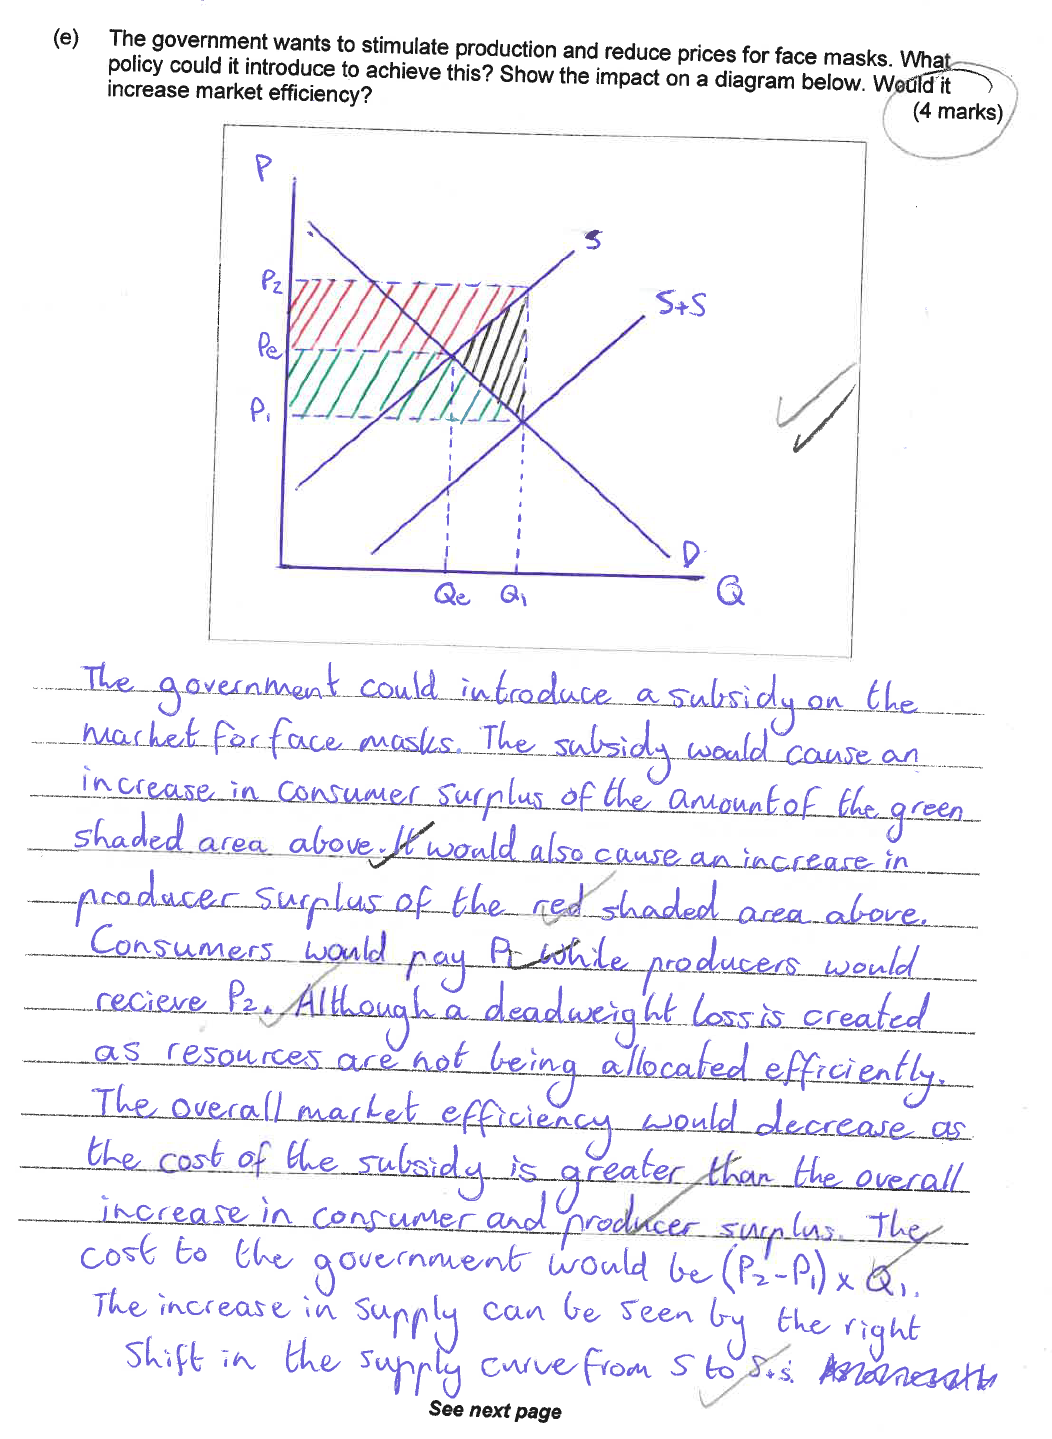 (e) The government wants to stimulate production and reduce prices for face masks. What
policy could it introduce to achieve this? Show the impact on a diagram below. Would it
increase market efficiency?
(4 marks)
P
S
P2
S+S
Pe
P1
D
Qe Q1 Q
The government could introduce a subsidy on the
market for face masks. The subsidy would cause an
increase in consumer surplus of the amount of the green
shaded area above. It would also cause an increase in
producer surplus of the red shaded area above.
Consumers would pay P1 while producers would
recieve P2. Although a deadweight loss is created
as resources are not being allocated efficiently.
The overall market efficiency would decrease as
the cost of the subsidy is greater than the overall
increase in consumer and producer surplus. The
cost to the government would be (P2-P1) x Q1.
The increase in supply can be seen by the right
shift in the supply curve from S to S+s.
See next page